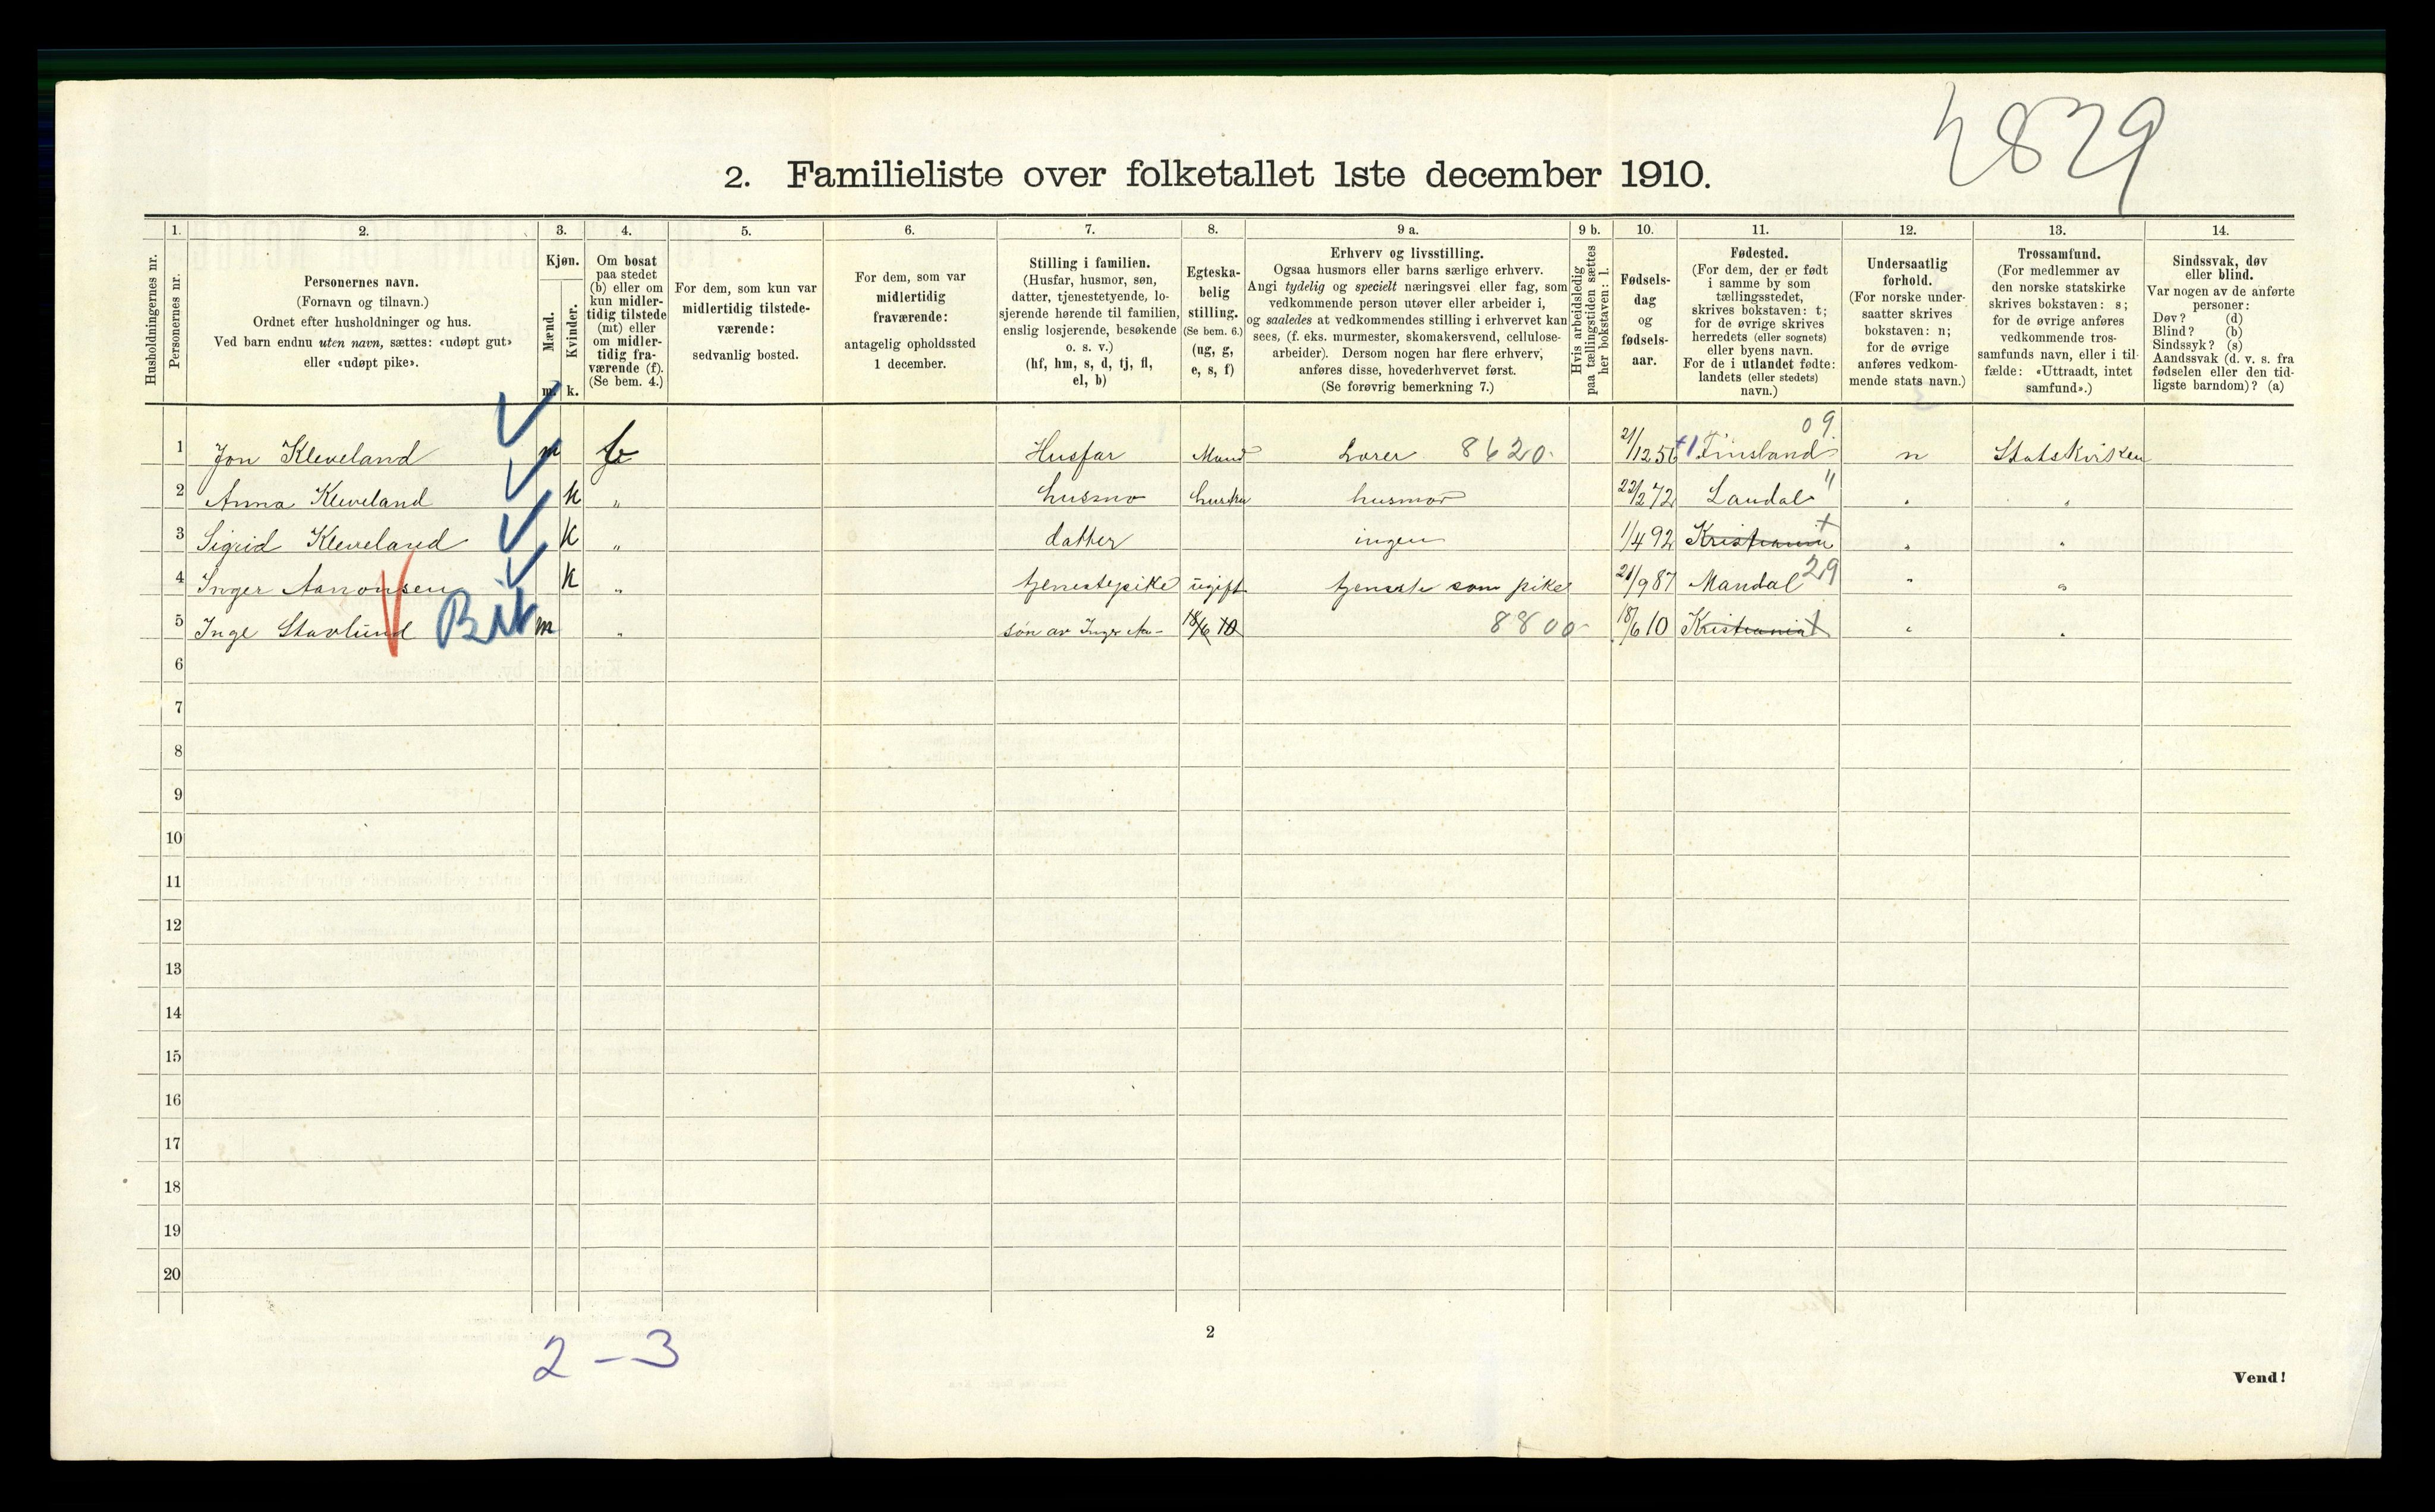 2829
2. Familieliste over folketallet 1ste december 1910.
1. 2. 3. 4. 5. 6. 7. 8. 9 a. 9 b. 10. 11. 12. 13. 14.
Husholdningernes nr.
Personernes nr.
Personernes navn.
(Fornavn og tilnavn.)
Ordnet efter husholdninger og hus.
Ved barn endnu uten navn, sættes: «udøpt gut»
eller «udøpt pike».
Kjøn.
Mænd.
Kvinder.
m. k.
Om bosat
paa stedet
(b) eller om
kun midler-
tidig tilstede
(mt) eller
om midler-
tidig fra-
værende (f).
(Se bem. 4.)
For dem, som kun var
midlertidig tilstede-
værende:
sedvanlig bosted.
For dem, som var
midlertidig
fraværende:
antagelig opholdssted
1 december.
Stilling i familien.
(Husfar, husmor, søn,
datter, tjenestetyende, lo-
sjerende hørende til familien,
enslig losjerende, besøkende
o. s. v.)
(hf, hm, s, d, tj, fl,
el, b)
Egteska-
belig
stilling.
(Se bem. 6.)
(ug, g,
e, s, f)
Erhverv og livsstilling.
Ogsaa husmors eller barns særlige erhverv.
Angi tydelig og specielt næringsvei eller fag, som
vedkommende person utøver eller arbeider i,
og saaledes at vedkommendes stilling i erhvervet kan
sees, (f. eks. murmester, skomakersvend, cellulose-
arbeider). Dersom nogen har flere erhverv,
anføres disse, hovederhvervet først.
(Se forøvrig bemerkning 7.)
Hvis arbeidsledig
paa tællingstiden sættes
her bokstaven: l.
Fødsels-
dag
og
fødsels-
aar.
Fødested.
(For dem, der er født
i samme by som
tællingsstedet,
skrives bokstaven: t;
for de øvrige skrives
herredets (eller sognets)
eller byens navn.
For de i utlandet fødte:
landets (eller stedets)
navn.)
Undersaatlig
forhold.
(For norske under-
saatter skrives
bokstaven: n;
for de øvrige
anføres vedkom-
mende stats navn.)
Trossamfund.
(For medlemmer av
den norske statskirke
skrives bokstaven: s;
for de øvrige anføres
vedkommende tros-
samfunds navn, eller i til-
fælde: «Uttraadt, intet
samfund».)
Sindssvak, døv
eller blind.
Var nogen av de anførte
personer:
Døv? (d)
Blind? (b)
Sindssyk? (s)
Aandssvak (d. v. s. fra
fødselen eller den tid-
ligste barndom)? (a)
09
1 Jon Kleveland m b Husfar Mand Lærer 8620 21/12 56 Finsland n Statskirken
2 Anna Kleveland k " husmo hustru husmor 22/2 72 Laudal " " "
3 Sigrid Kleveland k " datter ingen 1/4 92 Kristiania t " "
4 Inger Aanonsen k " tjenestepike ugift tjeneste som pike 21/9 87 Mandal 29 " "
5 Inge Stavlund m " søn av Inger Aa- 18/6 10 8800 18/6 10 Kristiania t " "
6
7
8
9
10
11
12
13
14
15
16
17
18
19
20
2
2-3
Vend!